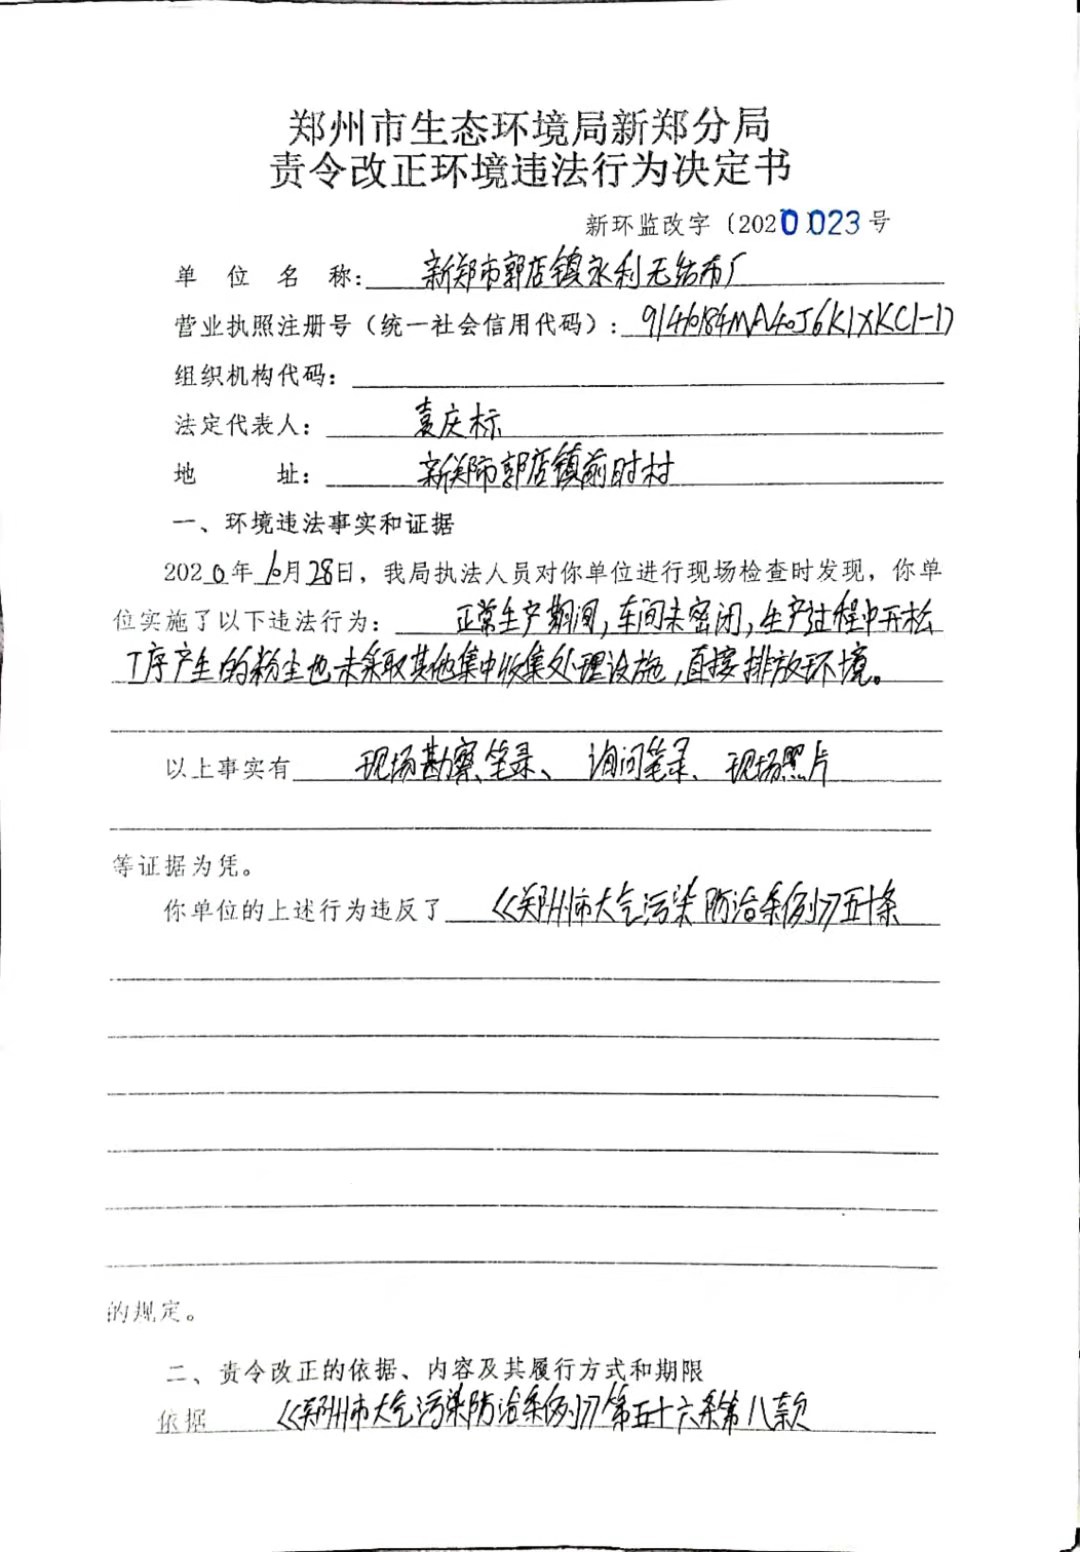 郑州市生态环境局新郑分局
责令改正环境违法行为决定书
新环监改字〔2020 023号
单位名称：新郑市郭店镇永利无纺布厂
营业执照注册号（统一社会信用代码）：
组织机构代码：
法定代表人：袁庆标
地址：新郑市郭店镇前时村
一、环境违法事实和证据
2020年10月28日，我局执法人员对你单位进行现场检查时发现，你单
位实施了以下违法行为：正常生产期间，车间未密闭，生产过程中开松
工序产生的粉尘也未采取其他集中收集处理设施，直接排放环境。
以上事实有 现场勘察笔录、询问笔录、现场照片
等证据为凭。
你单位的上述行为违反了《郑州市大气污染防治条例》五十条
的规定。
二、责令改正的依据、内容及其履行方式和期限
依据《郑州市大气污染防治条例》第五十六条第八款